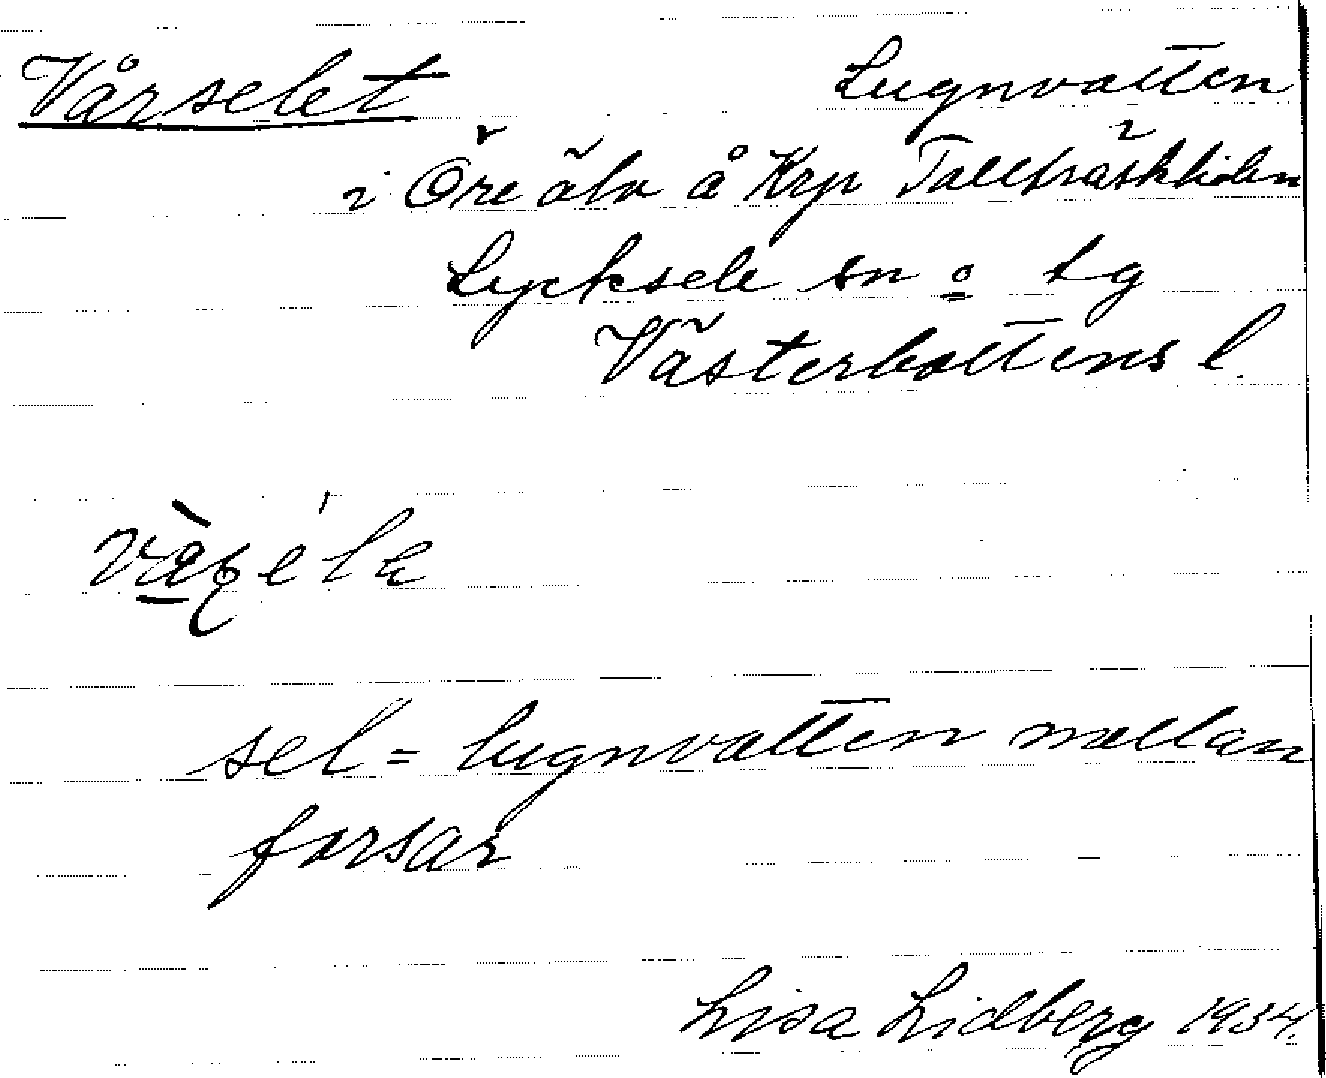 Vårselet Lugnvatten
i Öre älv å Krp Tallträskliden
Lycksele sn o tg
Västerbottens l.
sel = lugnvatten mellan
forsar
Lisa Lidberg 1934.